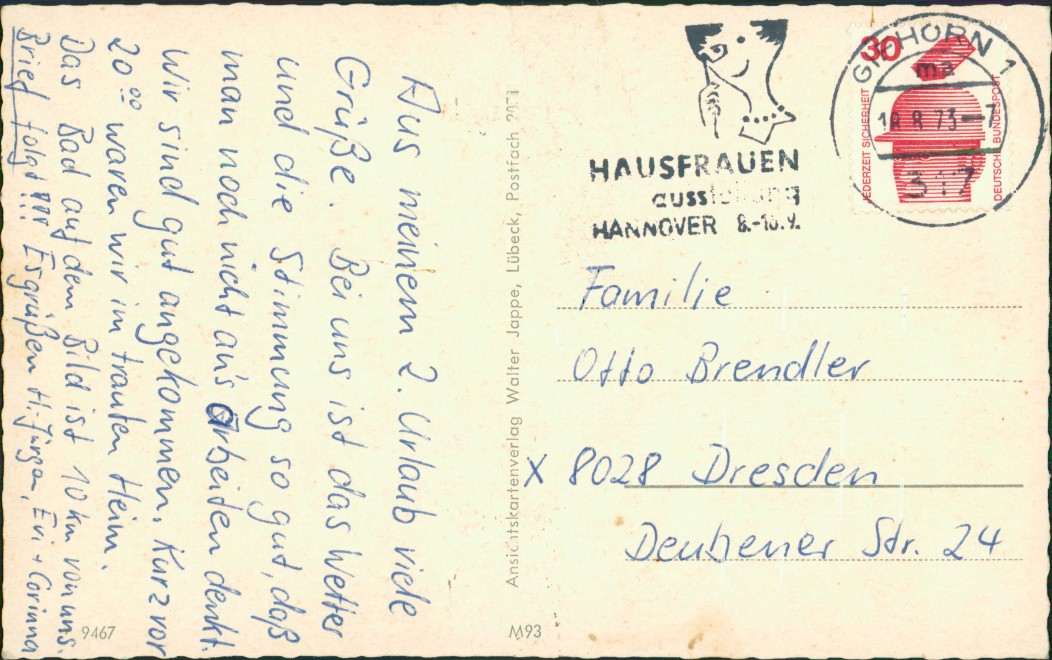 Aus meinem 2. Urlaub viele
Grüße. Bei uns ist das Wetter
und die Stimmung so gut, daß
man noch nicht an's Arbeiten denkt.
Wir sind gut angekommen. Kurz vor
20⁰⁰ waren wir im trauten Heim.
Das Bad auf dem Bild ist 10 km von uns.
Brief folgt!!! Es grüßen H.-Jürgen, Evi + Corinna
9467
Ansichtskartenverlag Walter Jappe, Lübeck, Postfach 2071
M93
HAUSFRAUEN
ausstellung
HANNOVER 8.-16.9.
GIFHORN 1
ma
18.8.73-7
317
30
JEDERZEIT SICHERHEIT
DEUTSCHE BUNDESPOST
Familie
Otto Brendler
X 8028 Dresden
Deubener Str. 24